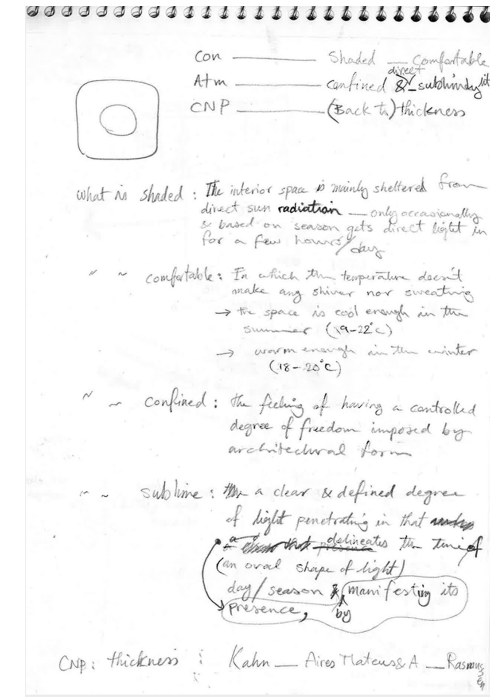 Con ——— Shaded — Comfortable
Atm ——— confined & direct sublimely lit
CNP ——— (Back to) thickness
what is shaded : The interior space is mainly sheltered from
direct sun radiation — only occasionally
& based on season gets direct light in
for a few hours/day
" ~ comfortable : In which the temperature doesn't
make any shiver nor sweating
→ the space is cool enough in the
summer (19-22°c)
→ warm enough in the winter
(18-20°C)
" ~ confined : the feeling of having a controlled
degree of freedom imposed by
architectural form
~ ~ sublime : a clear & defined degree
of light penetrating in that
delineates the time of
(an oval shape of light)
day/season & manifesting its
presence, by
CNP : thickness : Kahn — Aires Mateus & A — Rasmussen